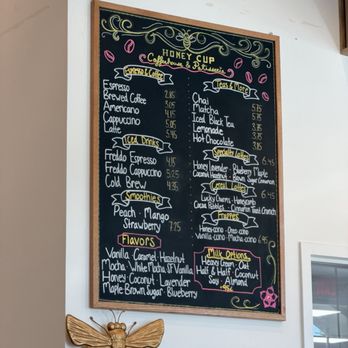 HONEY CUP
Coffeehouse & Patisserie
Espresso & Coffee
Espresso 2.85
Brewed Coffee
Americano
Cappuccino 5.05
Latte 5.45
Iced Drinks
Freddo Espresso
Freddo Cappuccino 5.25
Cold Brew 4.35
Smoothies
Peach · Mango
Strawberry 7.75
Flavors
Vanilla · Caramel · Hazelnut
Mocha · White Mocha · SF Vanilla
Honey · Coconut · Lavender
Maple · Brown Sugar · Blueberry
Teas & More
Chai
Matcha 5.75
Iced Black Tea
Lemonade
Hot Chocolate
Specialty Lattes 6.45
Honey Lavender · Blueberry Maple
Coconut Hazelnut · Brown Sugar Cinnamon
Cereal Lattes 6.45
Lucky Charms · Honeycomb
Cocoa Pebbles · Cinnamon Toast Crunch
Frappes
Honey-cano · Oreo-cano
Vanilla-cano · Mocha-cano 6.45
Milk Options
Heavy Cream · Oat
Half & Half · Coconut
Soy · Almond